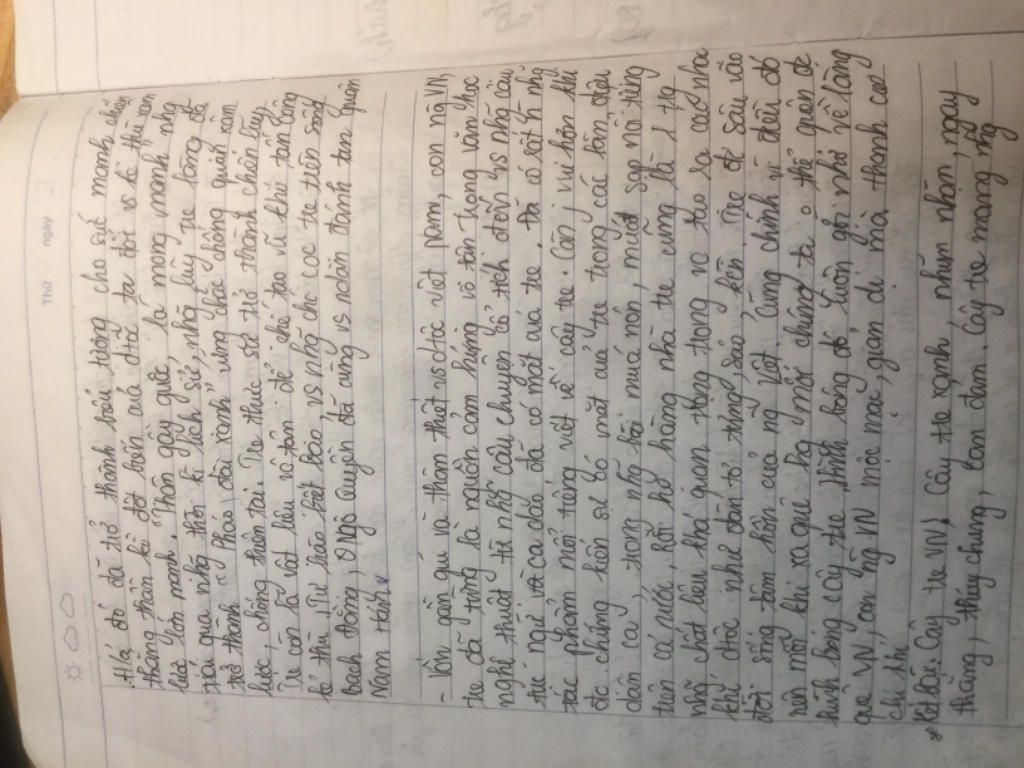 Thứ ngày
. Hđ đó đã trở thành biểu tượng cho sức mạnh chiến
thắng thần kì đất bến của dtộc ta đối vs kẻ thù xâm
lược lớn mạnh. "Thân gầy guộc, lá mong manh" nhg
trải qua nhg thiên kỉ lịch sử, nhg lũy tre làng đã
trở thành "pháo đài xanh" vững chắc chống quân xâm
lược, chống thiên tai. Tre thực sự trở thành chiến lũy,
Tre còn là vật liệu vô tận để chế tạo vũ khí tấn công
kẻ thù. Như liều kết hào vs nhg chị cọc tre trên sông
Bạch Đằng, Ô Ngô Quyền đã cùng vs ndân đánh tan quân
Nam Hán.
- Vốn gần gũi và thân thiết vs dtộc Việt Nam, con ng VN,
tre đã từng là nguồn cảm hứng vô tận trong văn học
nghệ thuật từ nhg câu chuyện cổ tích đến vs nhg câu
tục ngữ và ca dao đã có mặt của tre. Đã có rất n nhg
tác phẩm nổi tiếng viết về cây tre. Còn j vui hơn khi
đc chứng kiến sự có mặt của tre trong các làn điệu
dân ca, trong nhg bài múa nón, múa sạp nổi tiếng
trên cả nước, bởi lẽ hàng nhà tre cũng là 1 tng
nhg chất liệu khá quan trọng trong vc tạo ra các nhạc
khí dtộc như đàn tơ rưng, sáo, kèn. Tre đi sâu vào
đời sống tâm hồn của ng Việt. Cũng chính vì điều đó
nên mỗi khi xa quê hg mỗi chúng ta o thể quên đc
hình bóng cây tre, hình bóng đó luôn gợi nhớ về làng
quê VN, con ng VN mộc mạc, giản dị mà thanh cao
chí khí
* Kết bài: Cây tre VN! Cây tre xanh, nhũn nhặn, ngay
thẳng, thủy chung, can đảm. Cây tre mang nhg